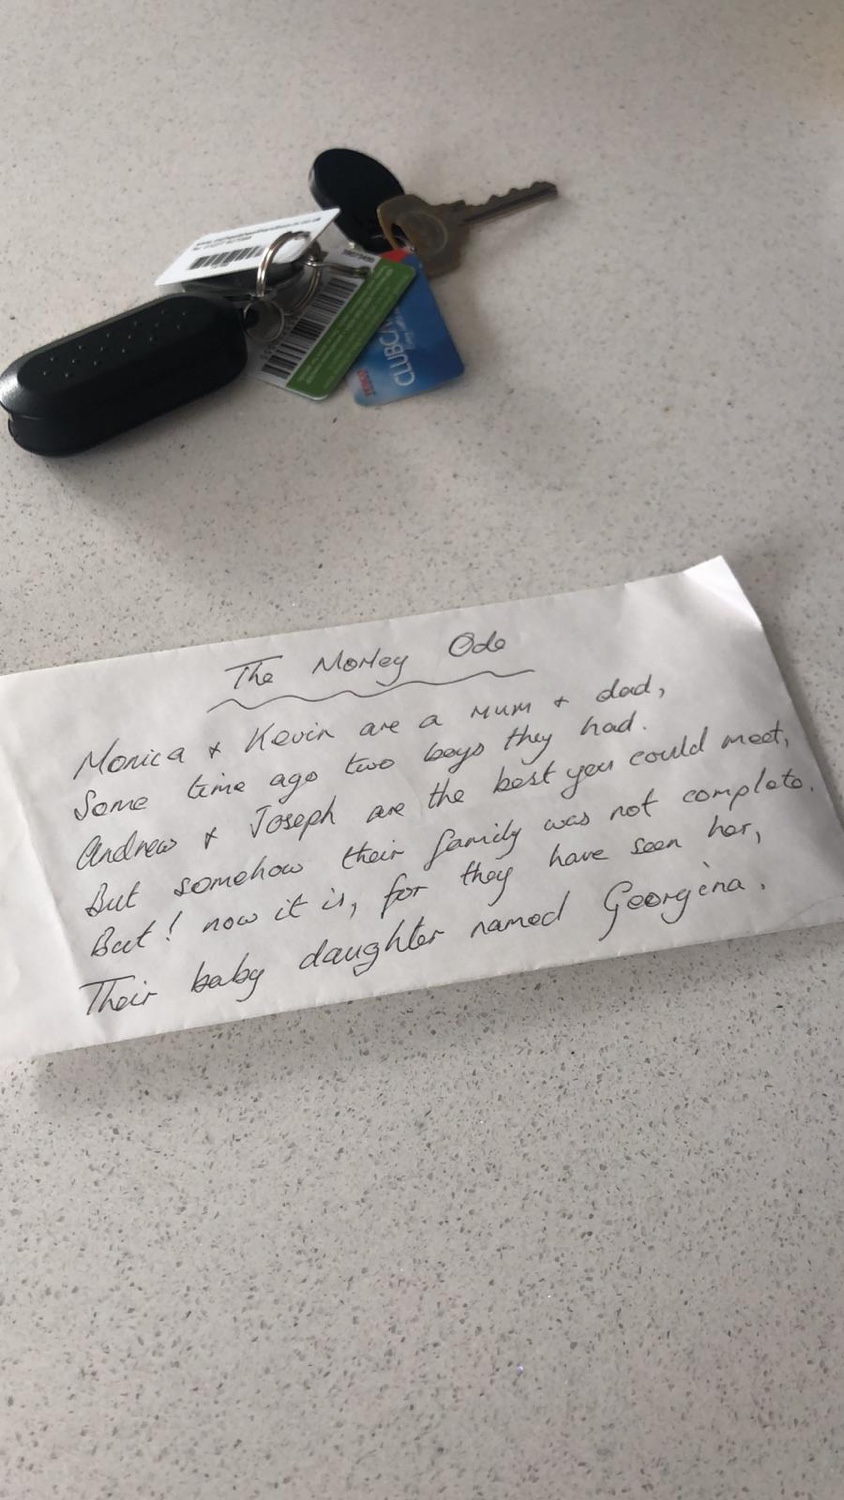 CLUBCA
TESCO
The Morley Ode
Monica & Kevin are a mum & dad,
Some time ago two boys they had.
Andrew & Joseph are the best you could meet,
But somehow their family was not complete.
But! now it is, for they have seen her,
Their baby daughter named Georgina.